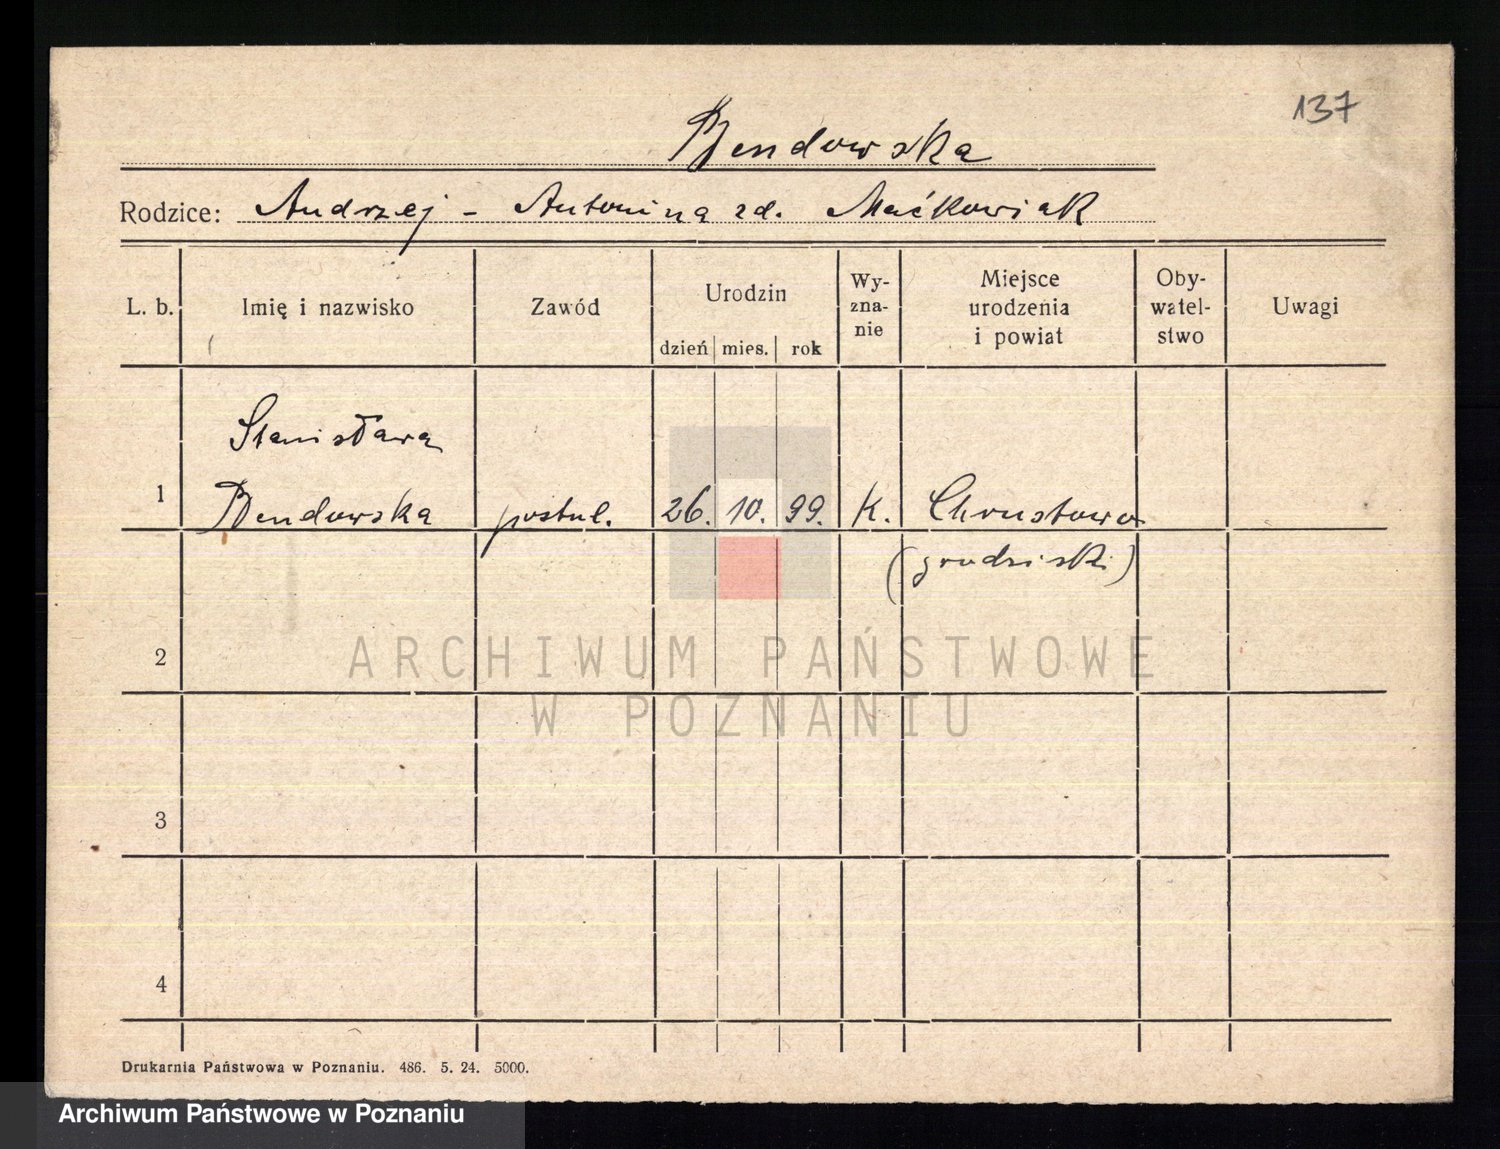 137
Bendowska
Rodzice: Andrzej - Antonina zd. Maćkowiak
L. b. Imię i nazwisko Zawód Urodzin dzień mies. rok Wy-zna-nie Miejsce urodzenia i powiat Oby-watel-stwo Uwagi
Stanisława
1 Bendowska postul. 26. 10. 99. K. Chrustowo
(grodziski)
2
ARCHIWUM PAŃSTWOWE
W POZNANIU
3
4
Drukarnia Państwowa w Poznaniu. 486. 5. 24. 5000.
Archiwum Państwowe w Poznaniu